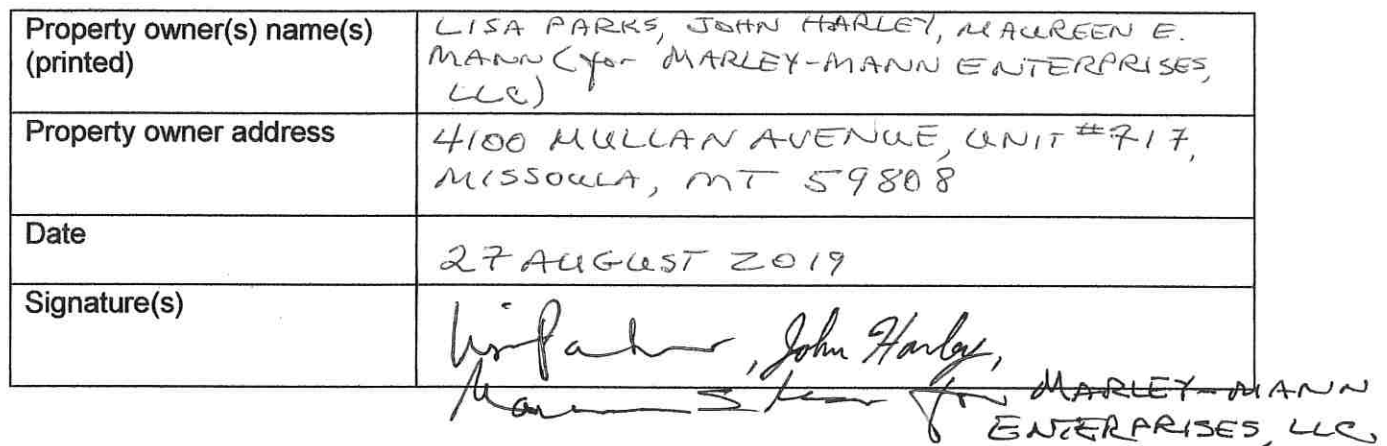 Property owner(s) name(s)
(printed)
LISA PARKS, JOHN HARLEY, MAUREEN E.
MANN (for MARLEY-MANN ENTERPRISES,
LLC)
Property owner address
4100 MULLAN AVENUE, UNIT #717,
MISSOULA, MT 59808
Date
27 AUGUST 2019
Signature(s)
Lisa Parks, John Harley,
for MARLEY-MANN
ENTERPRISES, LLC